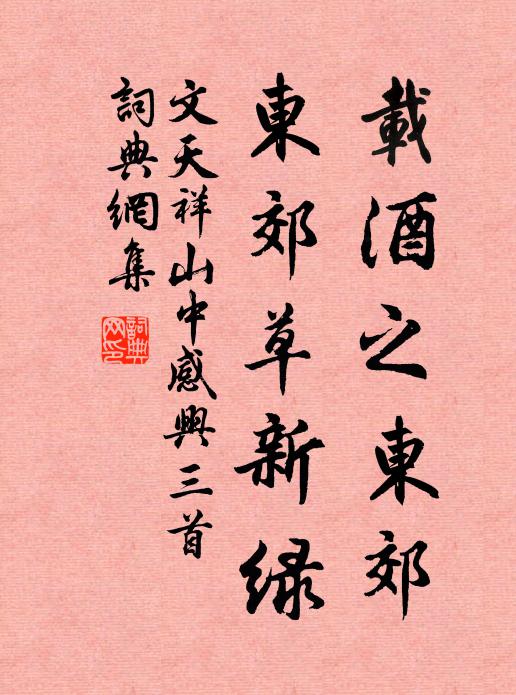 載酒之東郊
東郊草新緑
文天祥山中感興三首
詞典網集
詞典网印